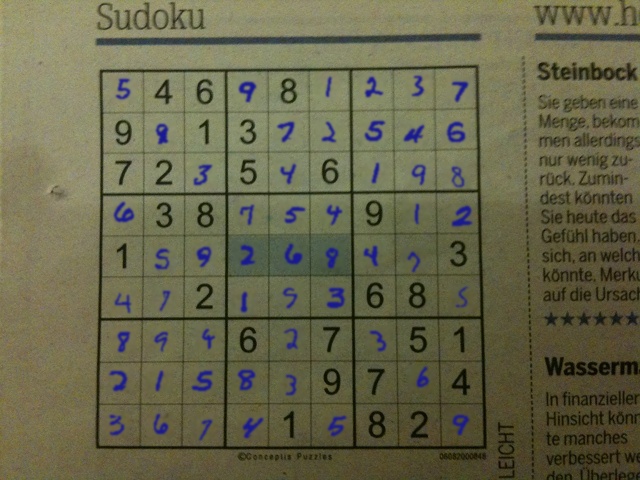 Sudoku
www.h
5 4 6 9 8 1 2 3 7
9 8 1 3 7 2 5 4 6
7 2 3 5 4 6 1 9 8
6 3 8 7 5 4 9 1 2
1 5 9 2 6 8 4 7 3
4 7 2 1 9 3 6 8 5
8 9 4 6 2 7 3 5 1
2 1 5 8 3 9 7 6 4
3 6 7 4 1 5 8 2 9
©Conceptis Puzzles
LEICHT
Steinbock
Sie geben eine
Menge, bekom
men allerdings
nur wenig zu-
rück. Zumin-
dest könnten
Sie heute das
Gefühl haben,
sich, an welch
könnte. Merku
auf die Ursach
★★★★★★
Wasserma
In finanziellen
Hinsicht könn
te manches
verbessert we
den. Überlege